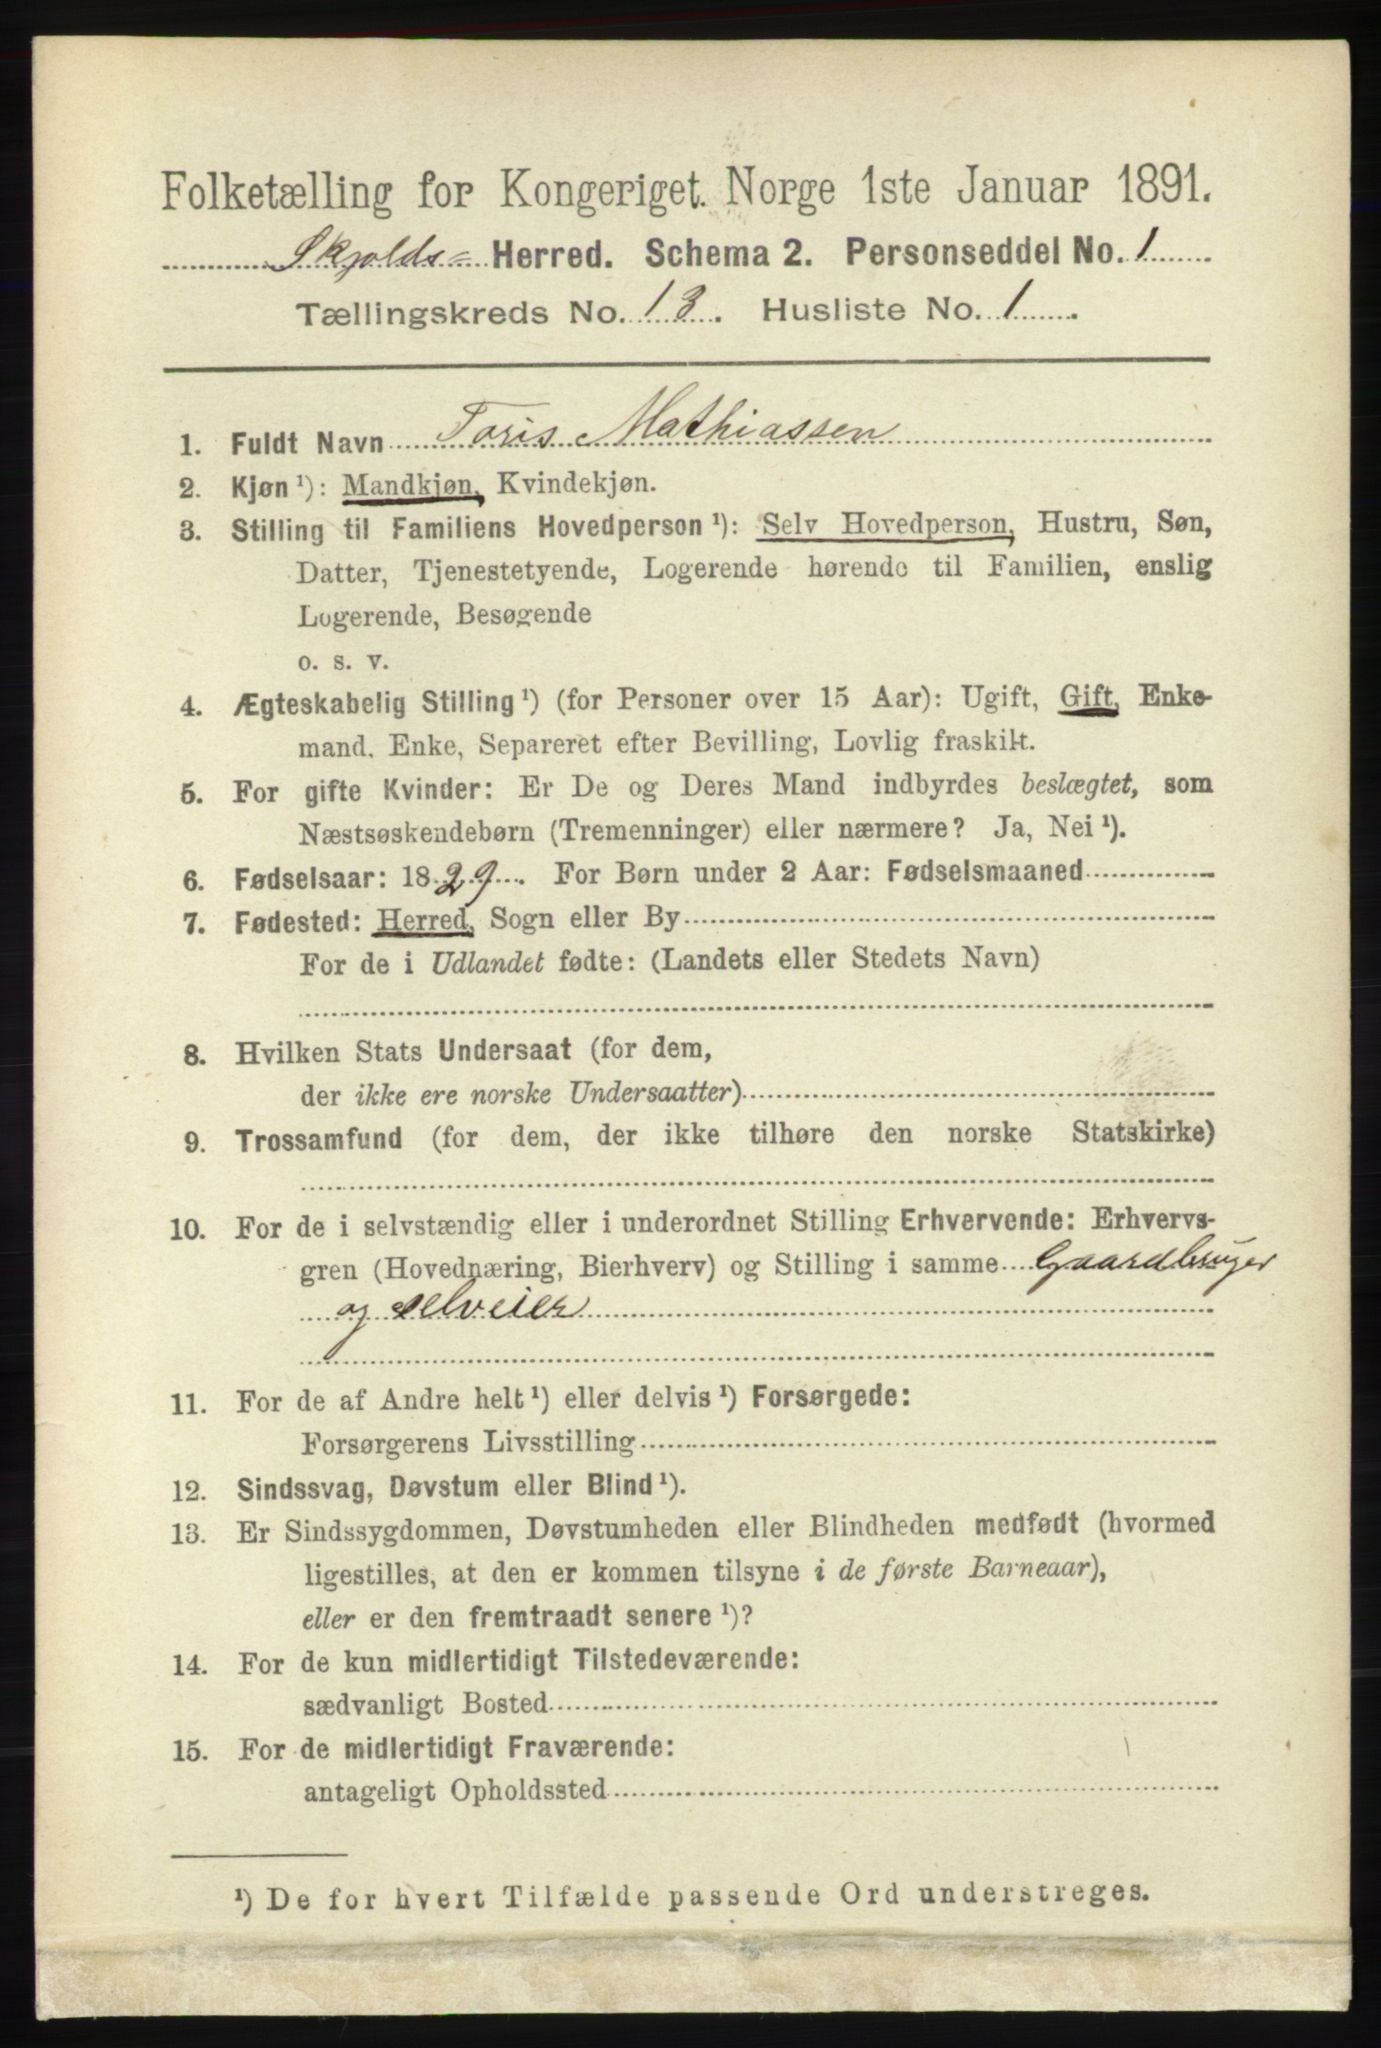 Folketælling for Kongeriget Norge 1ste Januar 1891.
Skjolds= Herred. Schema 2. Personseddel No. 1
Tællingskreds No. 13. Husliste No. 1.
1. Fuldt Navn Toris Mathiassen
2. Kjøn ¹): Mandkjøn, Kvindekjøn.
3. Stilling til Familiens Hovedperson ¹): Selv Hovedperson, Hustru, Søn,
Datter, Tjenestetyende, Logerende hørende til Familien, enslig
Logerende, Besøgende
o. s. v.
4. Ægteskabelig Stilling ¹) (for Personer over 15 Aar): Ugift, Gift, Enke-
mand, Enke, Separeret efter Bevilling, Lovlig fraskilt.
5. For gifte Kvinder: Er De og Deres Mand indbyrdes beslægtet, som
Næstsøskendebørn (Tremenninger) eller nærmere? Ja, Nei ¹).
6. Fødselsaar: 1829. For Børn under 2 Aar: Fødselsmaaned
7. Fødested: Herred, Sogn eller By
For de i Udlandet fødte: (Landets eller Stedets Navn)
8. Hvilken Stats Undersaat (for dem,
der ikke ere norske Undersaatter)
9. Trossamfund (for dem, der ikke tilhøre den norske Statskirke)
10. For de i selvstændig eller i underordnet Stilling Erhvervende: Erhvervs-
gren (Hovednæring, Bierhverv) og Stilling i samme Gaardbruger
og selveier
11. For de af Andre helt ¹) eller delvis ¹) Forsørgede:
Forsørgerens Livsstilling
12. Sindssvag, Døvstum eller Blind ¹).
13. Er Sindssygdommen, Døvstumheden eller Blindheden medfødt (hvormed
ligestilles, at den er kommen tilsyne i de første Barneaar),
eller er den fremtraadt senere ¹)?
14. For de kun midlertidigt Tilstedeværende:
sædvanligt Bosted
15. For de midlertidigt Fraværende:
antageligt Opholdssted
¹) De for hvert Tilfælde passende Ord understreges.